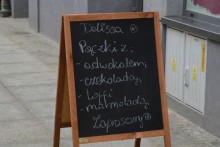 Dolissa
Pączki z:
- adwokatem
- czekoladą
- toffi
- marmoladą
Zapraszamy